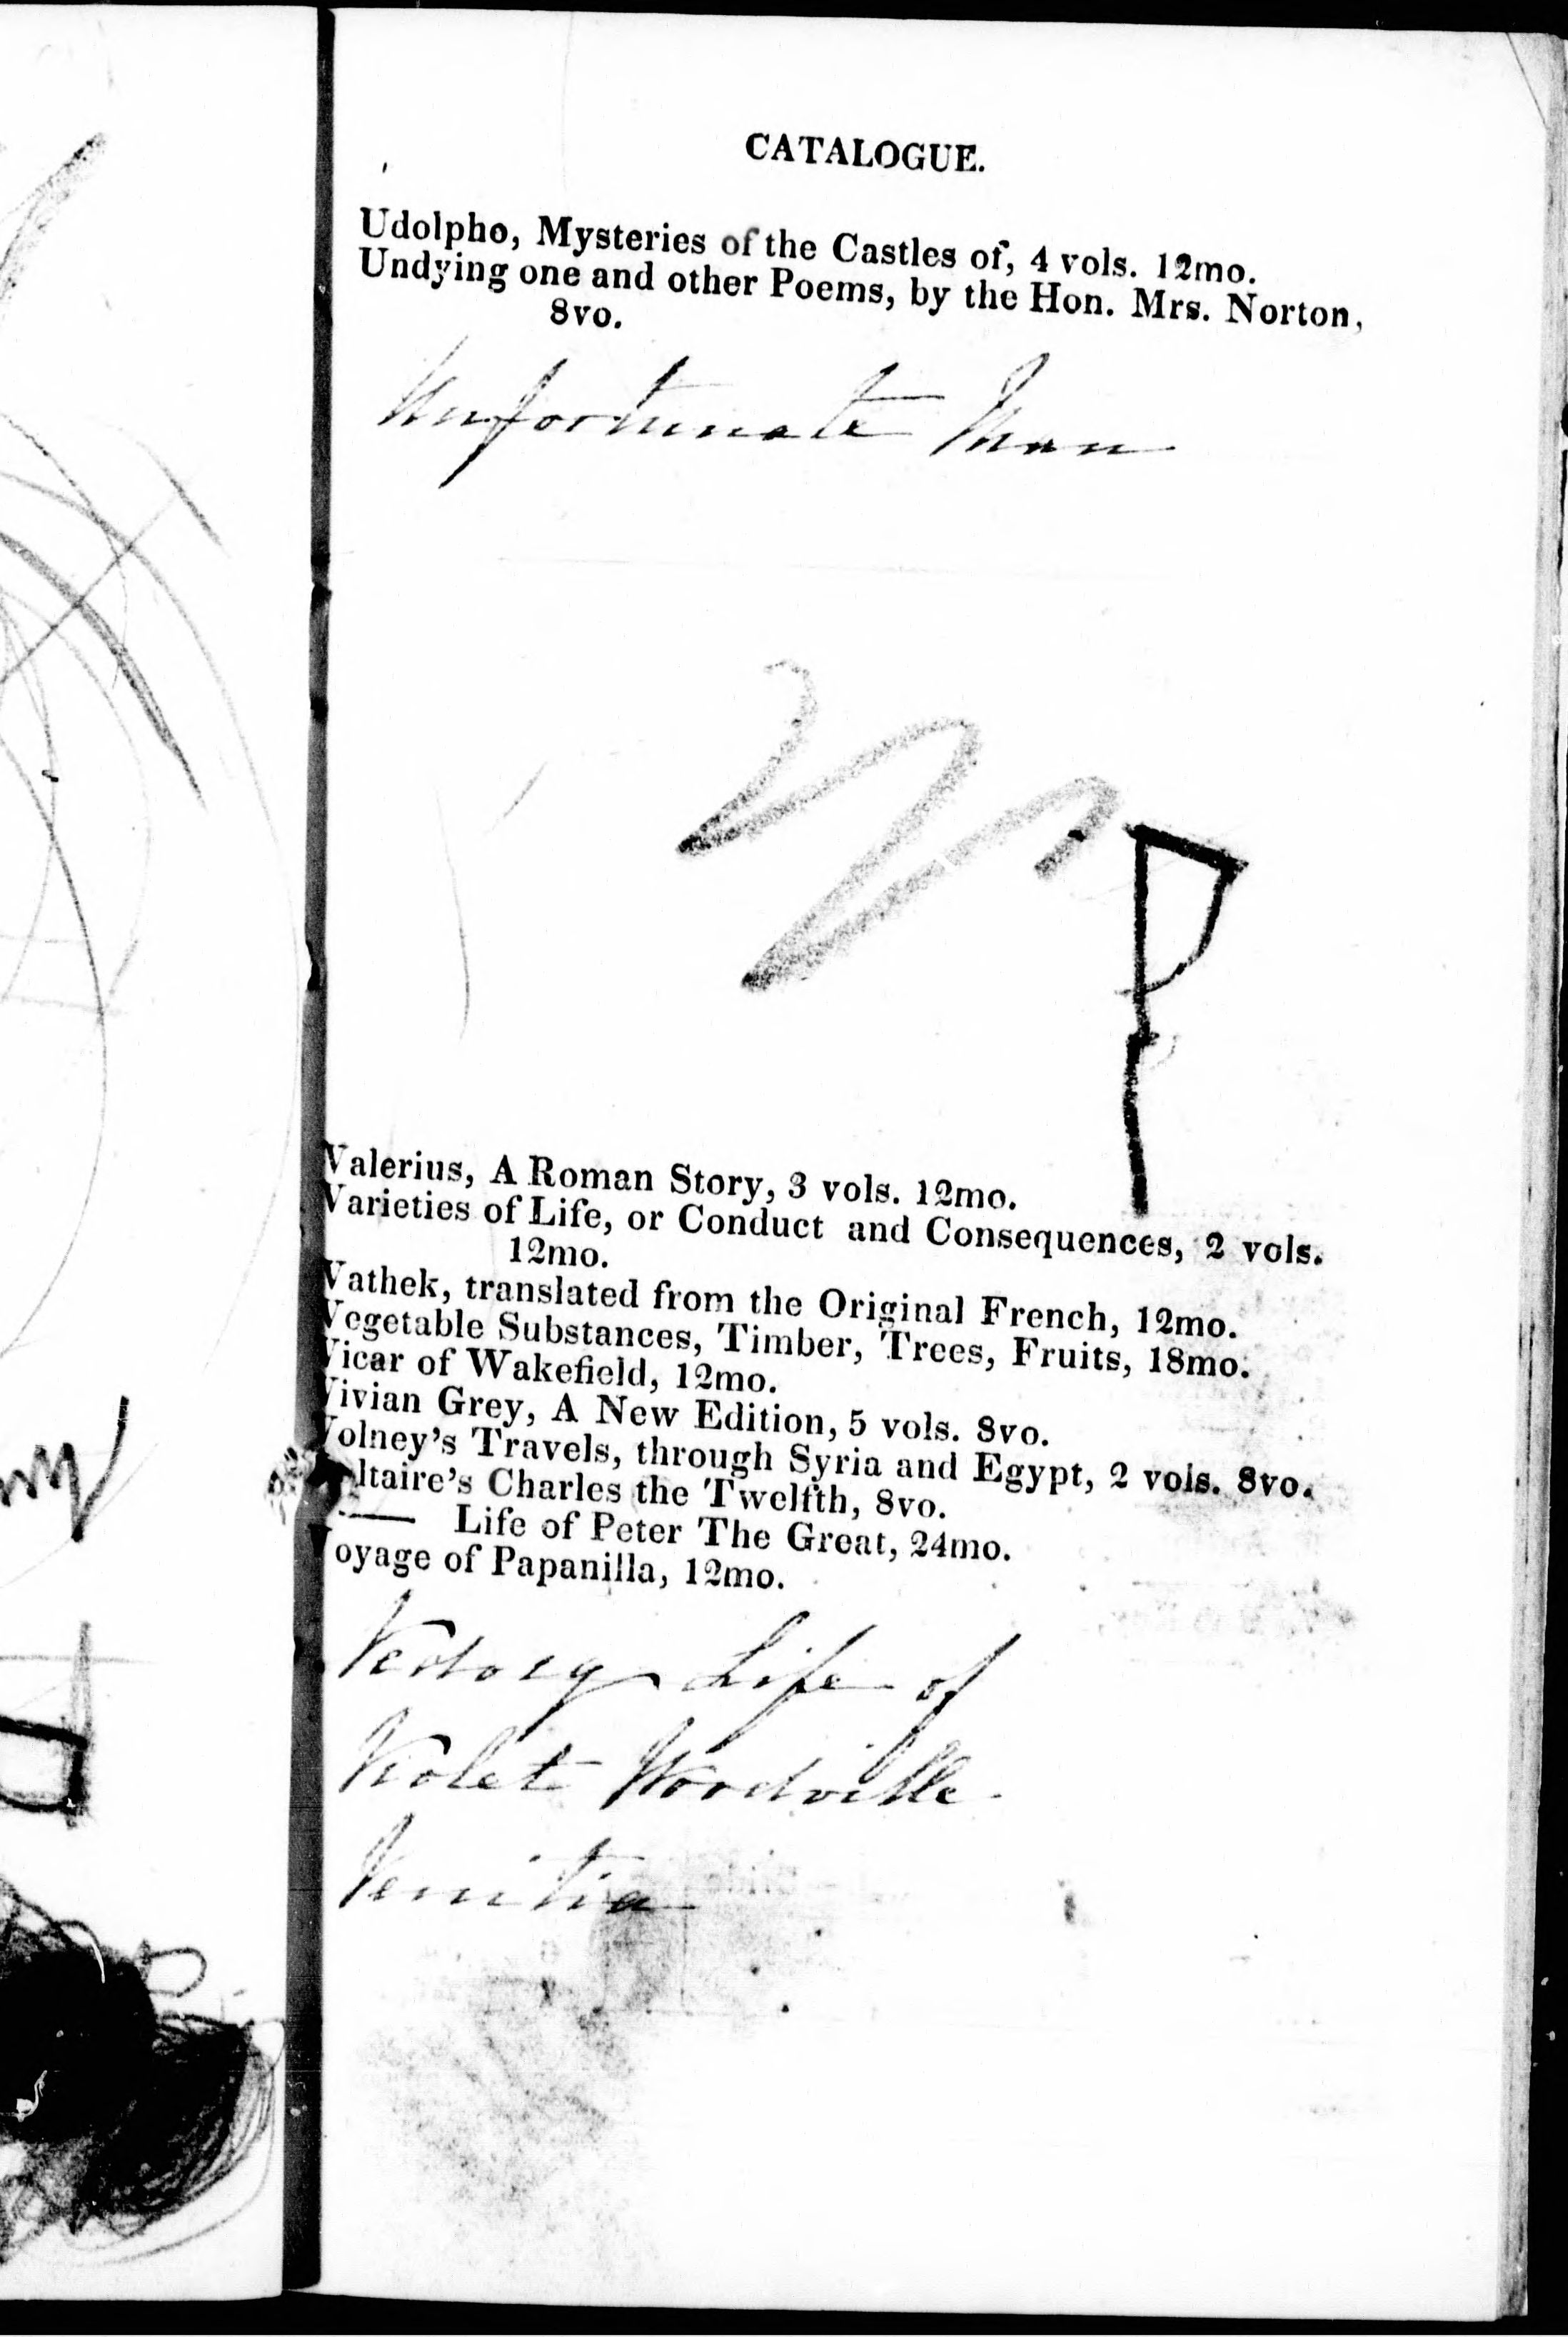 CATALOGUE.
Udolpho, Mysteries of the Castles of, 4 vols. 12mo.
Undying one and other Poems, by the Hon. Mrs. Norton,
8vo.
Unfortunate Man
Valerius, A Roman Story, 3 vols. 12mo.
Varieties of Life, or Conduct and Consequences, 2 vols.
12mo.
Vathek, translated from the Original French, 12mo.
Vegetable Substances, Timber, Trees, Fruits, 18mo.
Vicar of Wakefield, 12mo.
Vivian Grey, A New Edition, 5 vols. 8vo.
Volney's Travels, through Syria and Egypt, 2 vols. 8vo.
ltaire's Charles the Twelfth, 8vo.
—— Life of Peter The Great, 24mo.
Voyage of Papanilla, 12mo.
Life of
Violet Woodville
Venitia